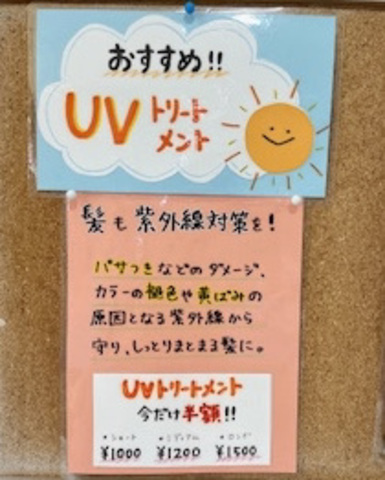 おすすめ!!
UVトリートメント
髪も紫外線対策を!
パサつきなどのダメージ、
カラーの褪色や黄ばみの
原因となる紫外線から
守り、しっとりまとまる髪に。
UVトリートメント
今だけ半額!!
・ショート ・ミディアム ・ロング
¥1000 ¥1200 ¥1500